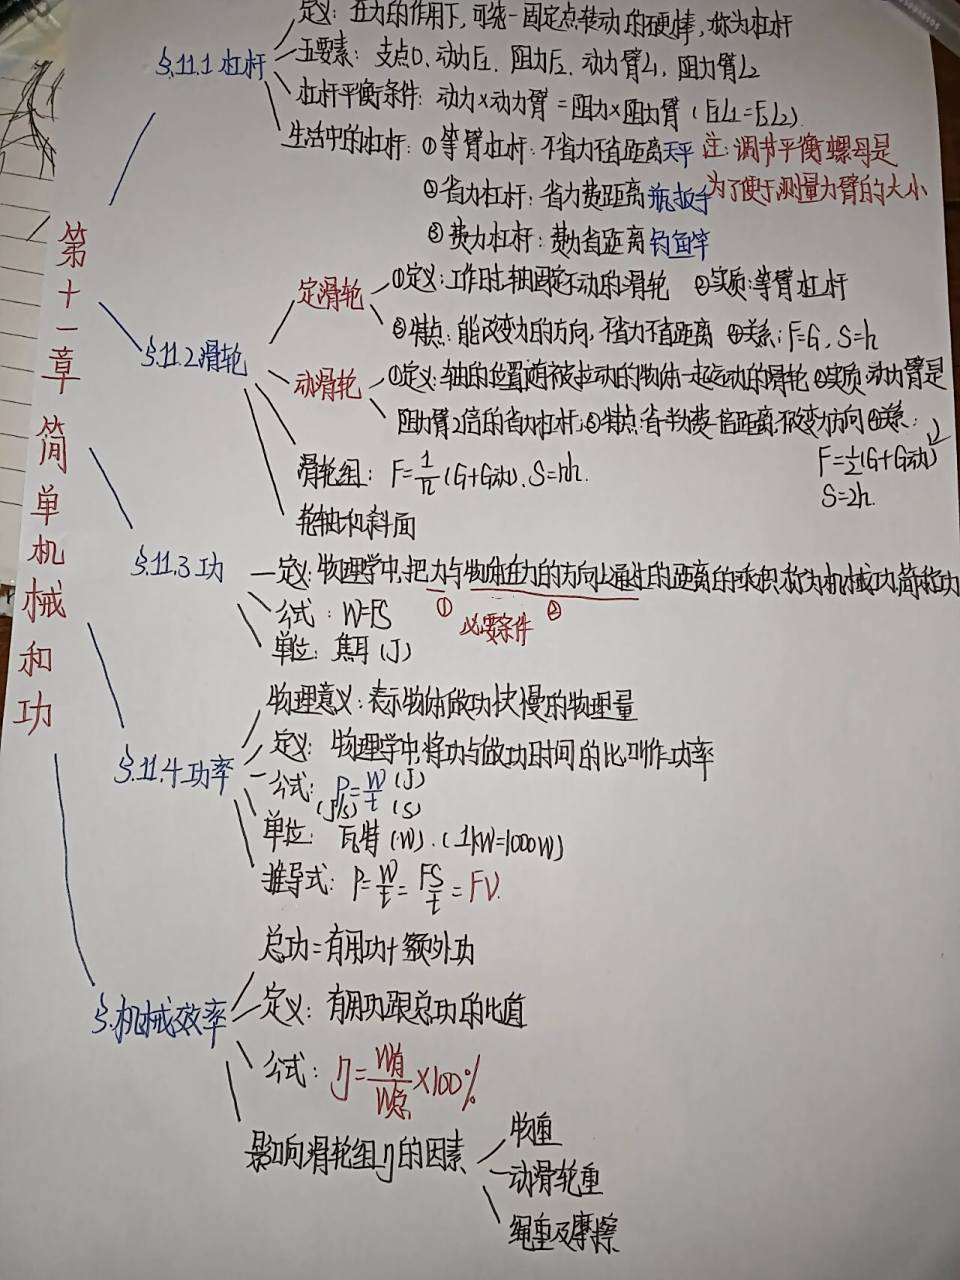 第十一章 简单机械和功
§.11.1 杠杆
定义: 在力的作用下, 可绕一固定点转动的硬棒, 称为杠杆
五要素: 支点O、动力F1、阻力F2、动力臂L1, 阻力臂L2
杠杆平衡条件: 动力×动力臂 = 阻力×阻力臂 (F1L1=F2L2)
生活中的杠杆: ①等臂杠杆: 不省力不省距离 天平 注: 调节平衡螺母是
②省力杠杆: 省力费距离 瓶扳手 为了便于测量力臂的大小
③费力杠杆: 费力省距离 钓鱼竿
§.11.2 滑轮
定滑轮 ①定义: 工作时,轴固定不动的滑轮 ②实质: 等臂杠杆
③特点: 能改变力的方向, 不省力不省距离 ④关系: F=G, S=h
动滑轮 ①定义: 轴的位置随被拉动的物体一起运动的滑轮 ②实质: 动力臂是
阻力臂2倍的省力杠杆; ③特点: 省半力费一倍距离,不改变力方向 ④关系:
F=1/2(G+G动)
S=2h.
滑轮组: F=1/n(G+G动). S=nh.
轮轴和斜面
§.11.3 功
定义: 物理学中, 把力与物体在力的方向上通过的距离的乘积称为机械功,简称功
① 必要条件 ②
公式: W=FS
单位: 焦耳 (J)
§.11.4 功率
物理意义: 表示物体做功快慢的物理量
定义: 物理学中,将功与做功时间的比,叫作功率
公式: P=W/t (J)
(J/s) (s)
单位: 瓦特 (W). (1kW=1000W)
推导式: P=W/t=FS/t=FV.
§.机械效率
总功=有用功+额外功
定义: 有用功跟总功的比值
公式: η=W有/W总×100%
影响滑轮组η的因素
物重
动滑轮重
绳重及摩擦